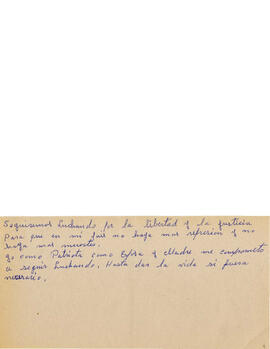 Seguiremos Luchando por la libertad y la justicia
Para que en mi país no haya mas represion y no
haya mas muertos.
yo como Patriota como Esposa y Madre me comprometo
a seguir Luchando. Hasta dar la vida si fuera
necesario.